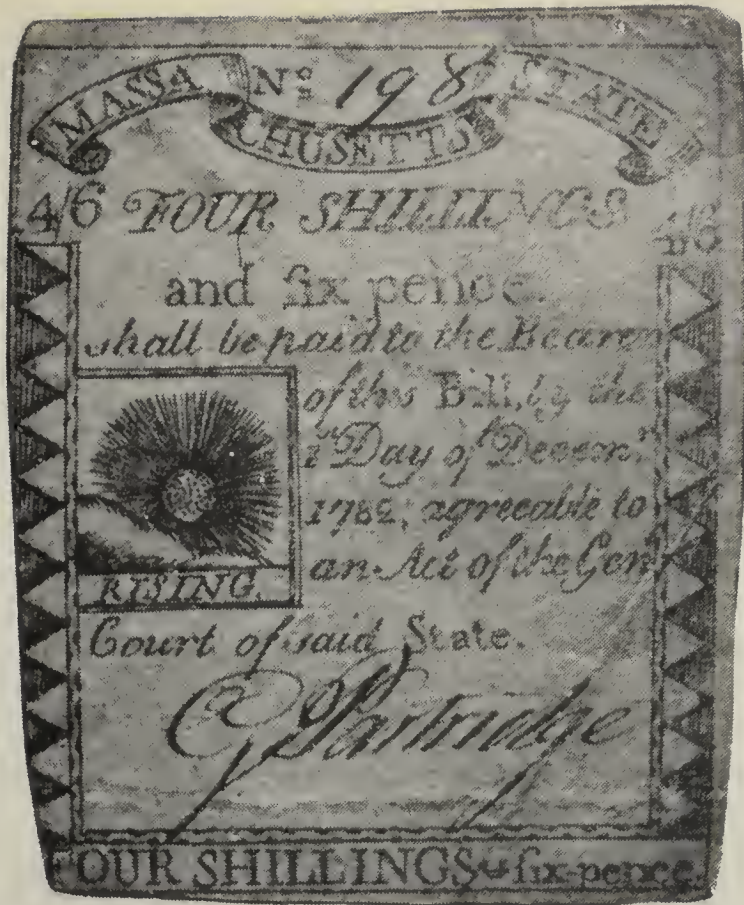 MASSA Nº 198 STATE
CHUSETTS
4/6 FOUR SHILLINGS 4/6
and ſix pence.
shall be paid to the Bearer
of this Bill, by the
1st Day of Decemr.
1782, agreeable to
an Act of the Genl
RISING.
Court of said State.
G Partridge
FOUR SHILLINGS & ſix-pence.